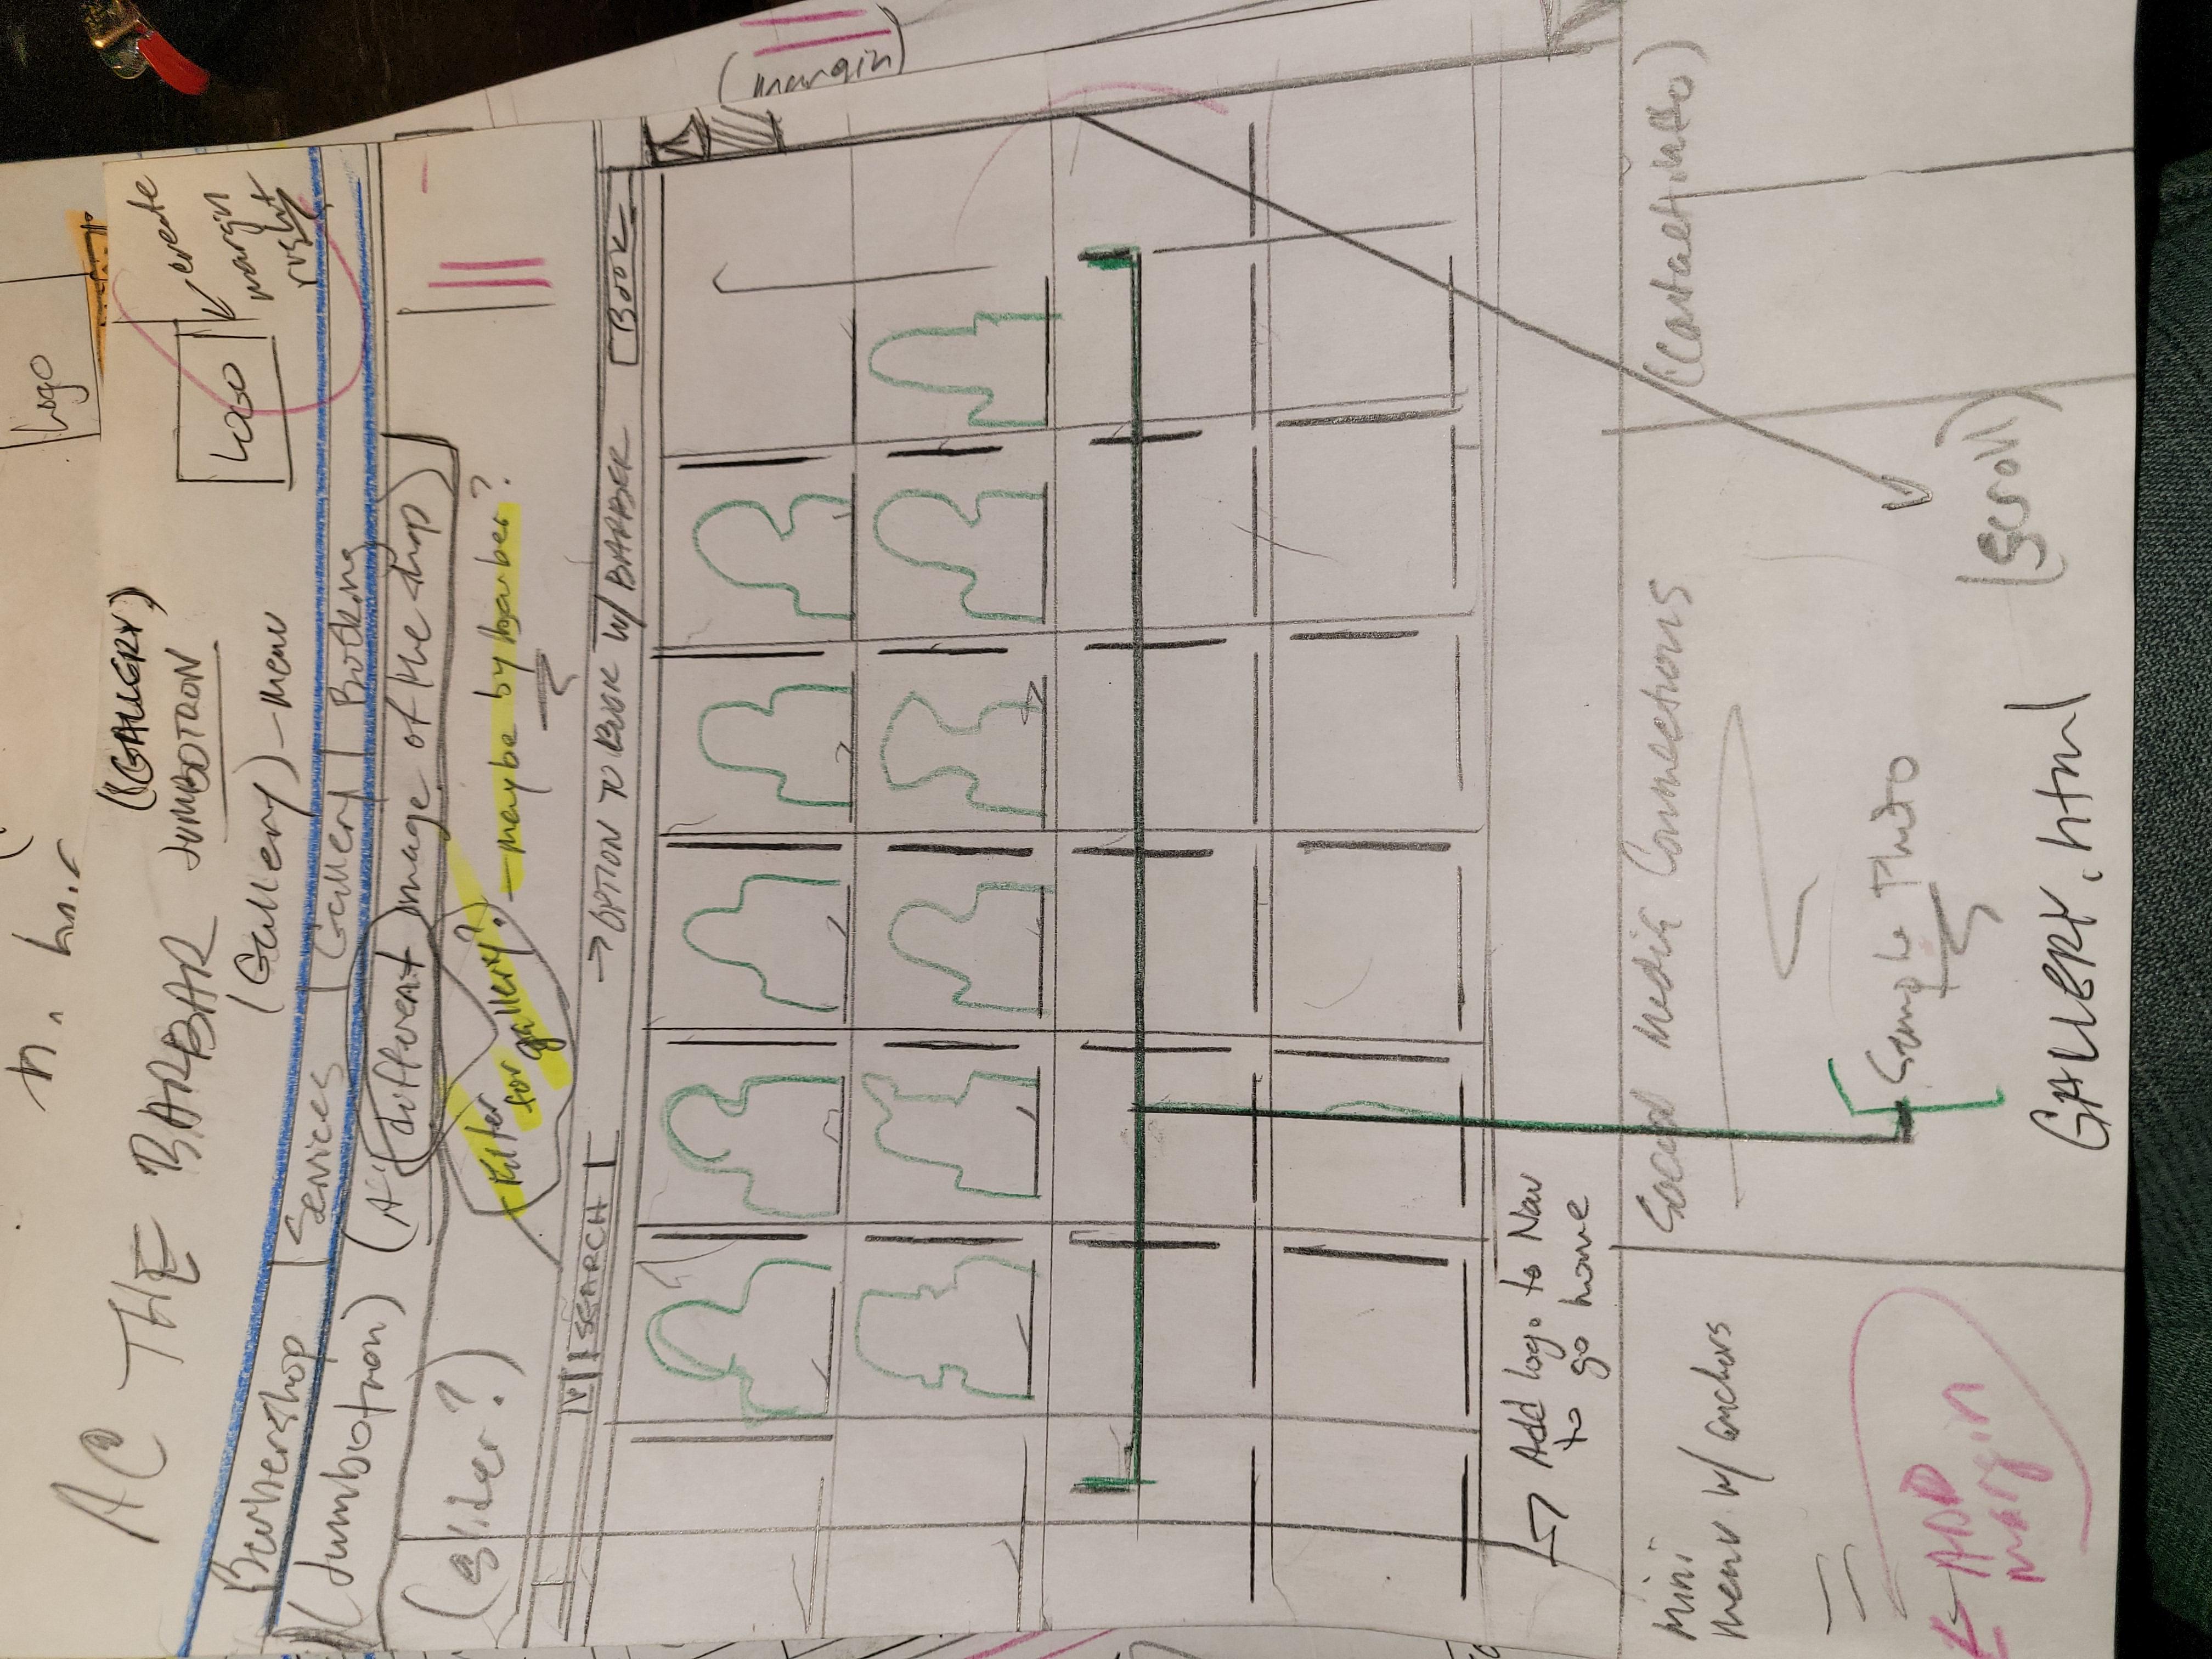 Logo
AC THE BARBAR
(GALLERY)
JUMBOTRON
(Gallery) - menu
Logo
create
margin
right
Barbershop | Services | Gallery | Booking
(Jumbotron) (A different image of the shop)
(Slider?)
Filter
for
gallery?
- maybe by barber?
SEARCH
→ OPTION TO BOOK W/ BARBER
BOOK
(margin)
→ Add logo to Nav
to go home
Mini
menu w/ anchors
Social Media Connections
(contact info)
← ADD
margin
Sample Photo
(scroll)
GALLERY.html